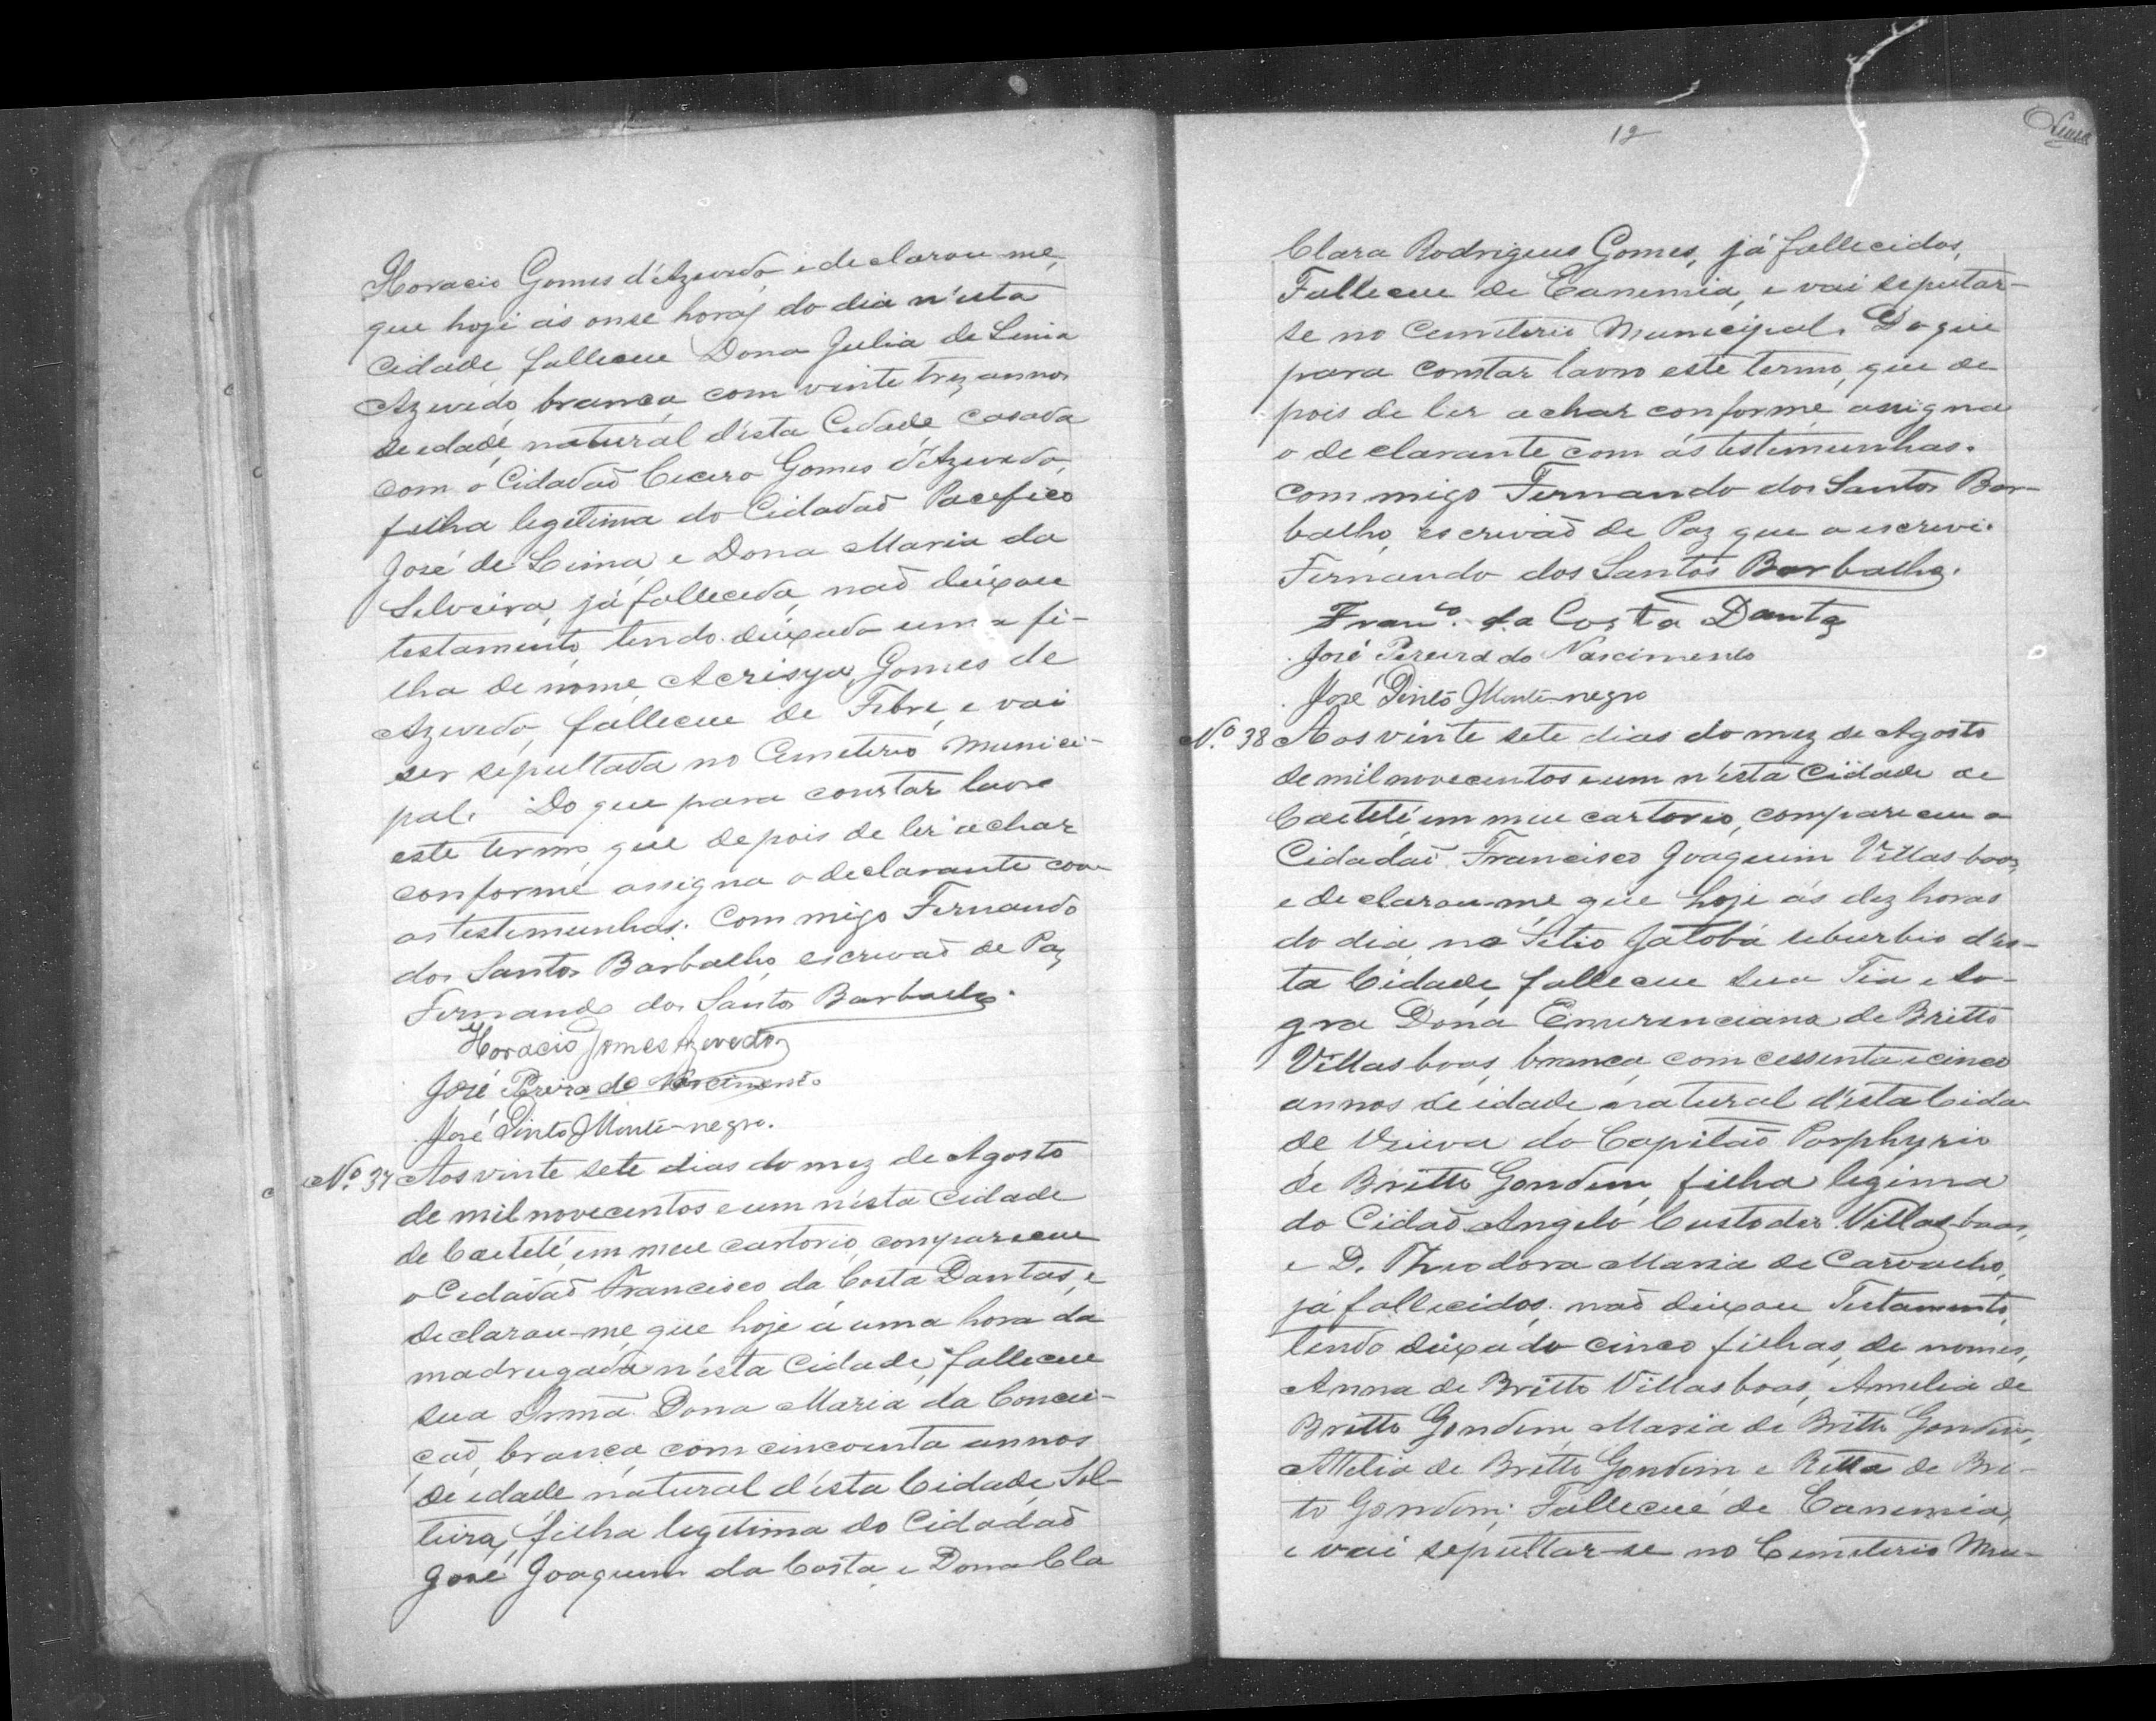 Horacio Gomes d'Azevedo e declarou-me,
que hoje ás onse horas do dia n'esta
Cidade falleceu Dona Julia de Lima
Azevedo, branca, com vinte trez annos
de edade, natural d'esta Cidade casada
com o Cidadaõ Cicero Gomes d'Azevedo,
filha legitima do Cidadaõ Pacifico
José de Lima e Dona Maria da
Silveira, já fallecida, naõ deixou
testamento, tendo deixado uma fi-
lha de nome Acrisya Gomes de
Azevedo, falleceu de Febre, e vai
ser sepultada no Cemeterio Munici-
pal. Do que para constar lavro
este termo, que depois de ler achar
conforme assigna o declarante com
as testemunhas. Commigo Fernando
dos Santos Barbalho escrivaõ de Paz
Fernando dos Santos Barbalho.
Horacio Gomes Azevedo
José Pereira do Nascimento
José Pinto Monte-negro.
Nº 37 Aos vinte sete dias do mez de Agosto
de mil novecentos e um n'esta Cidade
de Caeteté, em meu cartorio, compareceu
o Cidadaõ Francisco da Costa Dantas, e
declarou-me que hoje á uma hora da
madrugada n'esta Cidade, falleceu
sua Irmã Dona Maria da Concei-
çaõ, branca, com cincoenta annos
de edade natural d'esta Cidade, Sol-
teira, filha legitima do Cidadaõ
José Joaquim da Costa e Dona Cla
12
Clara Rodrigues Gomes, já fallecidos,
Falleceu de Eanemia, e vai seputar-
se no Cemeterio Municipal. Do que
para constar lavro este termo, que de
pois de ler achar conforme assigna
o declarante com ás testemunhas.
Commigo Fernando dos Santos Bar-
balho, escrivaõ de Paz que o escrevi.
Fernando dos Santos Barbalho.
Franco. da Costa Dantas
José Pereira do Nascimento
José Pinto Monte-negro
Nº 38 Aos vinte sete dias do mez de Agosto
de mil novecentos e um n'esta Cidade de
Caeteté em meu cartorio, compareceu o
Cidadaõ Francisco Joaquim Villasboas,
e declarou-me que hoje ás dez horas
do dia, no Sitio Jatobá suburbio d'es-
ta Cidade, falleceu sua Tia e So-
gra Dona Emerenciana de Britto
Villasboas, branca, com cessenta e cinco
annos de idade, natural d'esta Cida-
de Viuva do Capitaõ Porphyrio
de Britto Gondim, filha legima
do Cidaõ Angelo Custodio Villasboas,
e D. Theodora Maria de Carvalho,
já fallecidos, naõ deixou Testamento,
tendo deixado cinco filhas, de nomes,
Anna de Britto Villasboas, Amelia de
Britto Gondim, Maria de Britto Gondim,
Attilia de Britto Gondim e Ritta de Bri-
to Gondim; Falleceu de Eanemia,
e vai sepultar-se no Cemeterio Mu-